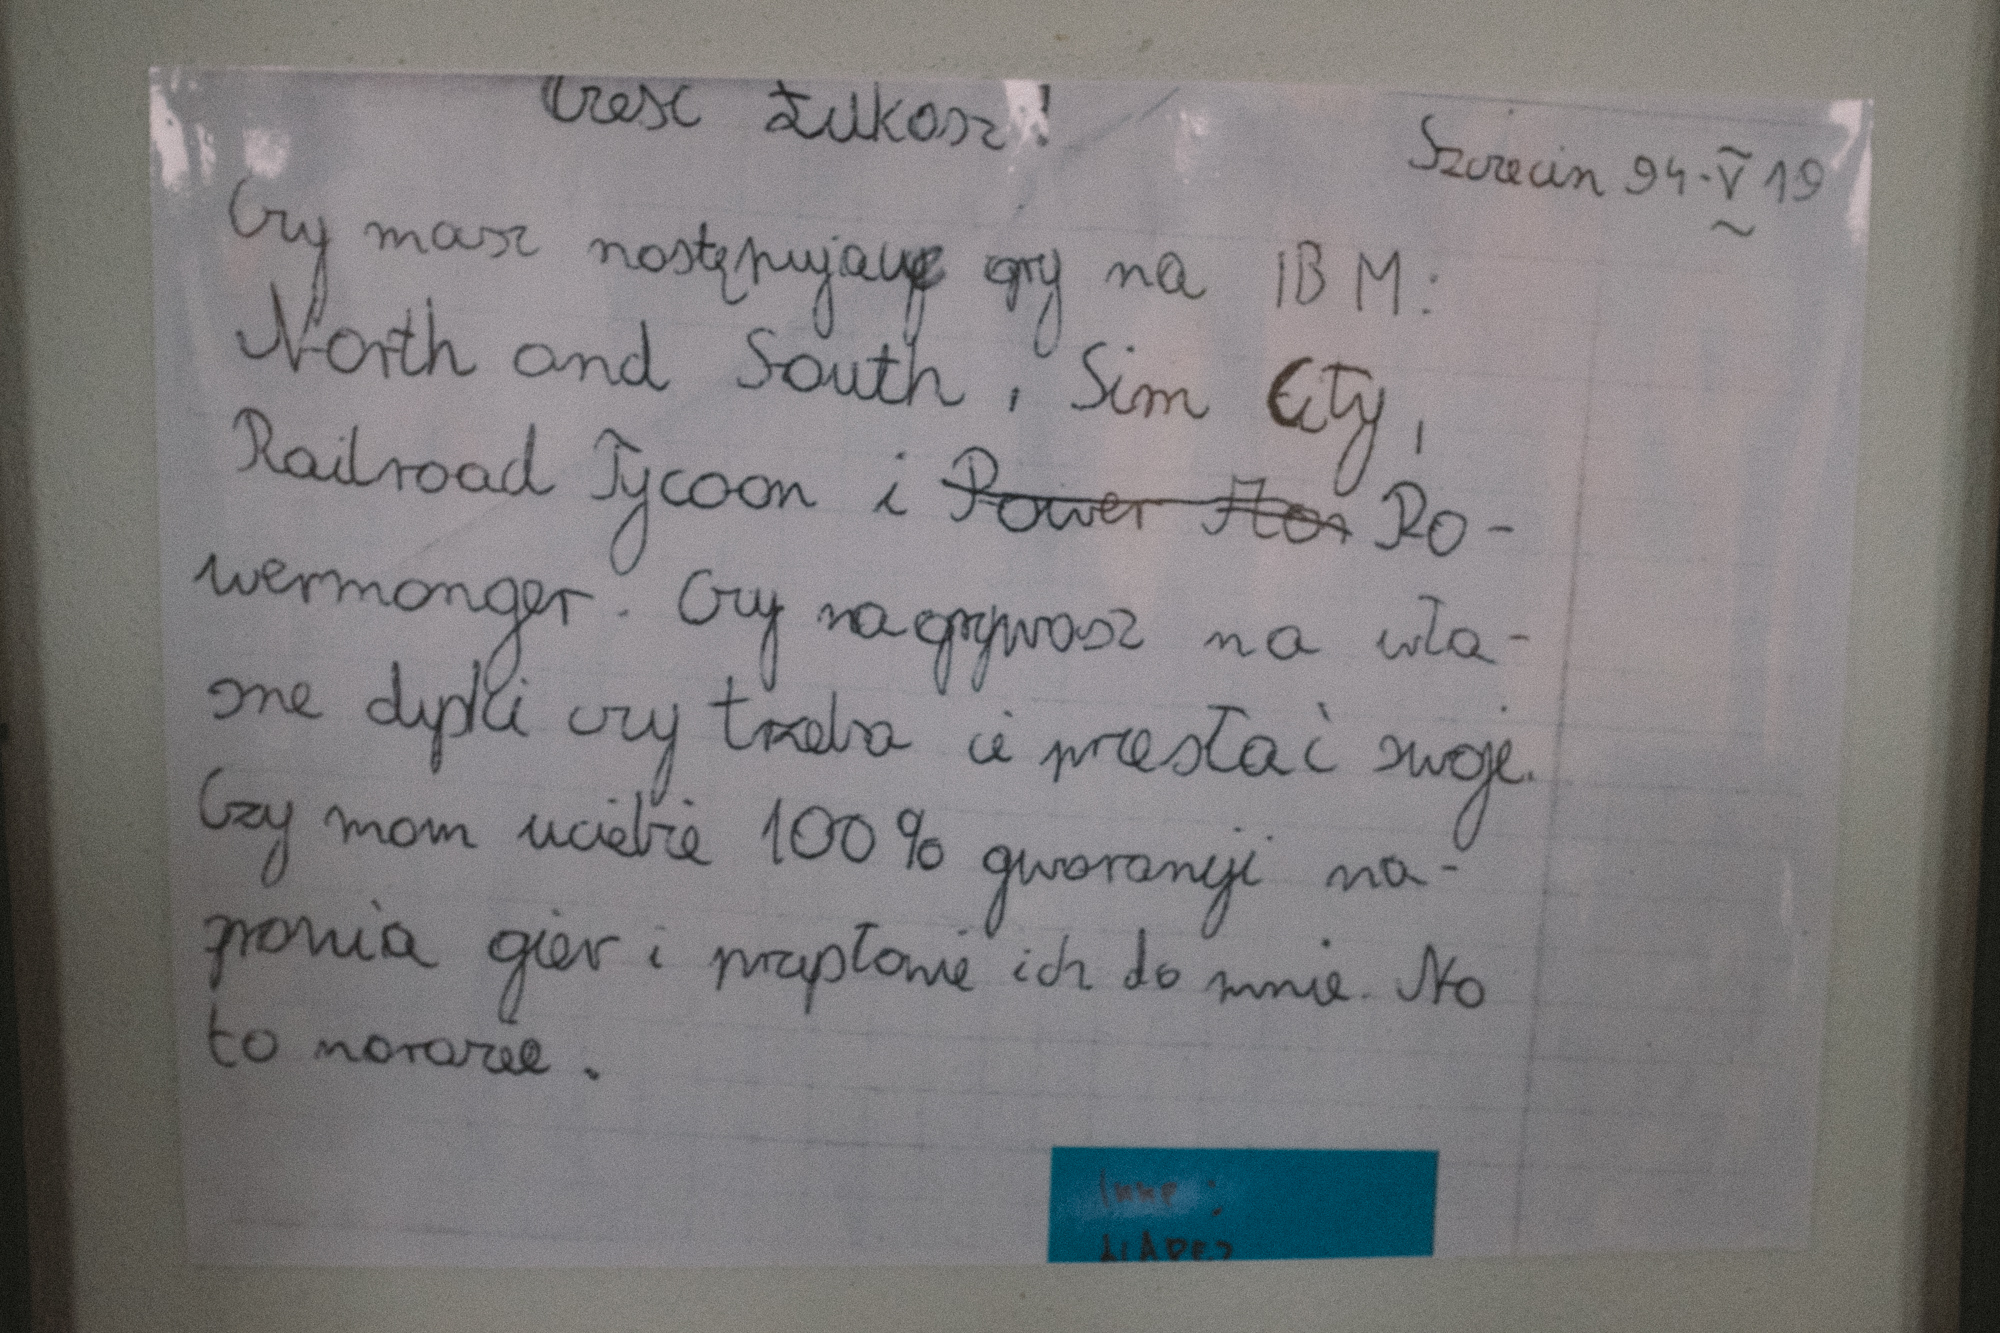 Cześć Łukasz!
Szczecin 94.V 19
Czy masz następujące gry na IBM:
North and South, Sim City,
Railroad Tycoon i Power Mon Po-
wermonger. Czy nagrywasz na wła-
sne dyski czy trzeba ci przesłać swoje.
Czy mam uciebie 100% gwarancji na-
grania gier i przysłanie ich do mnie. No
to narazie.
Inne: